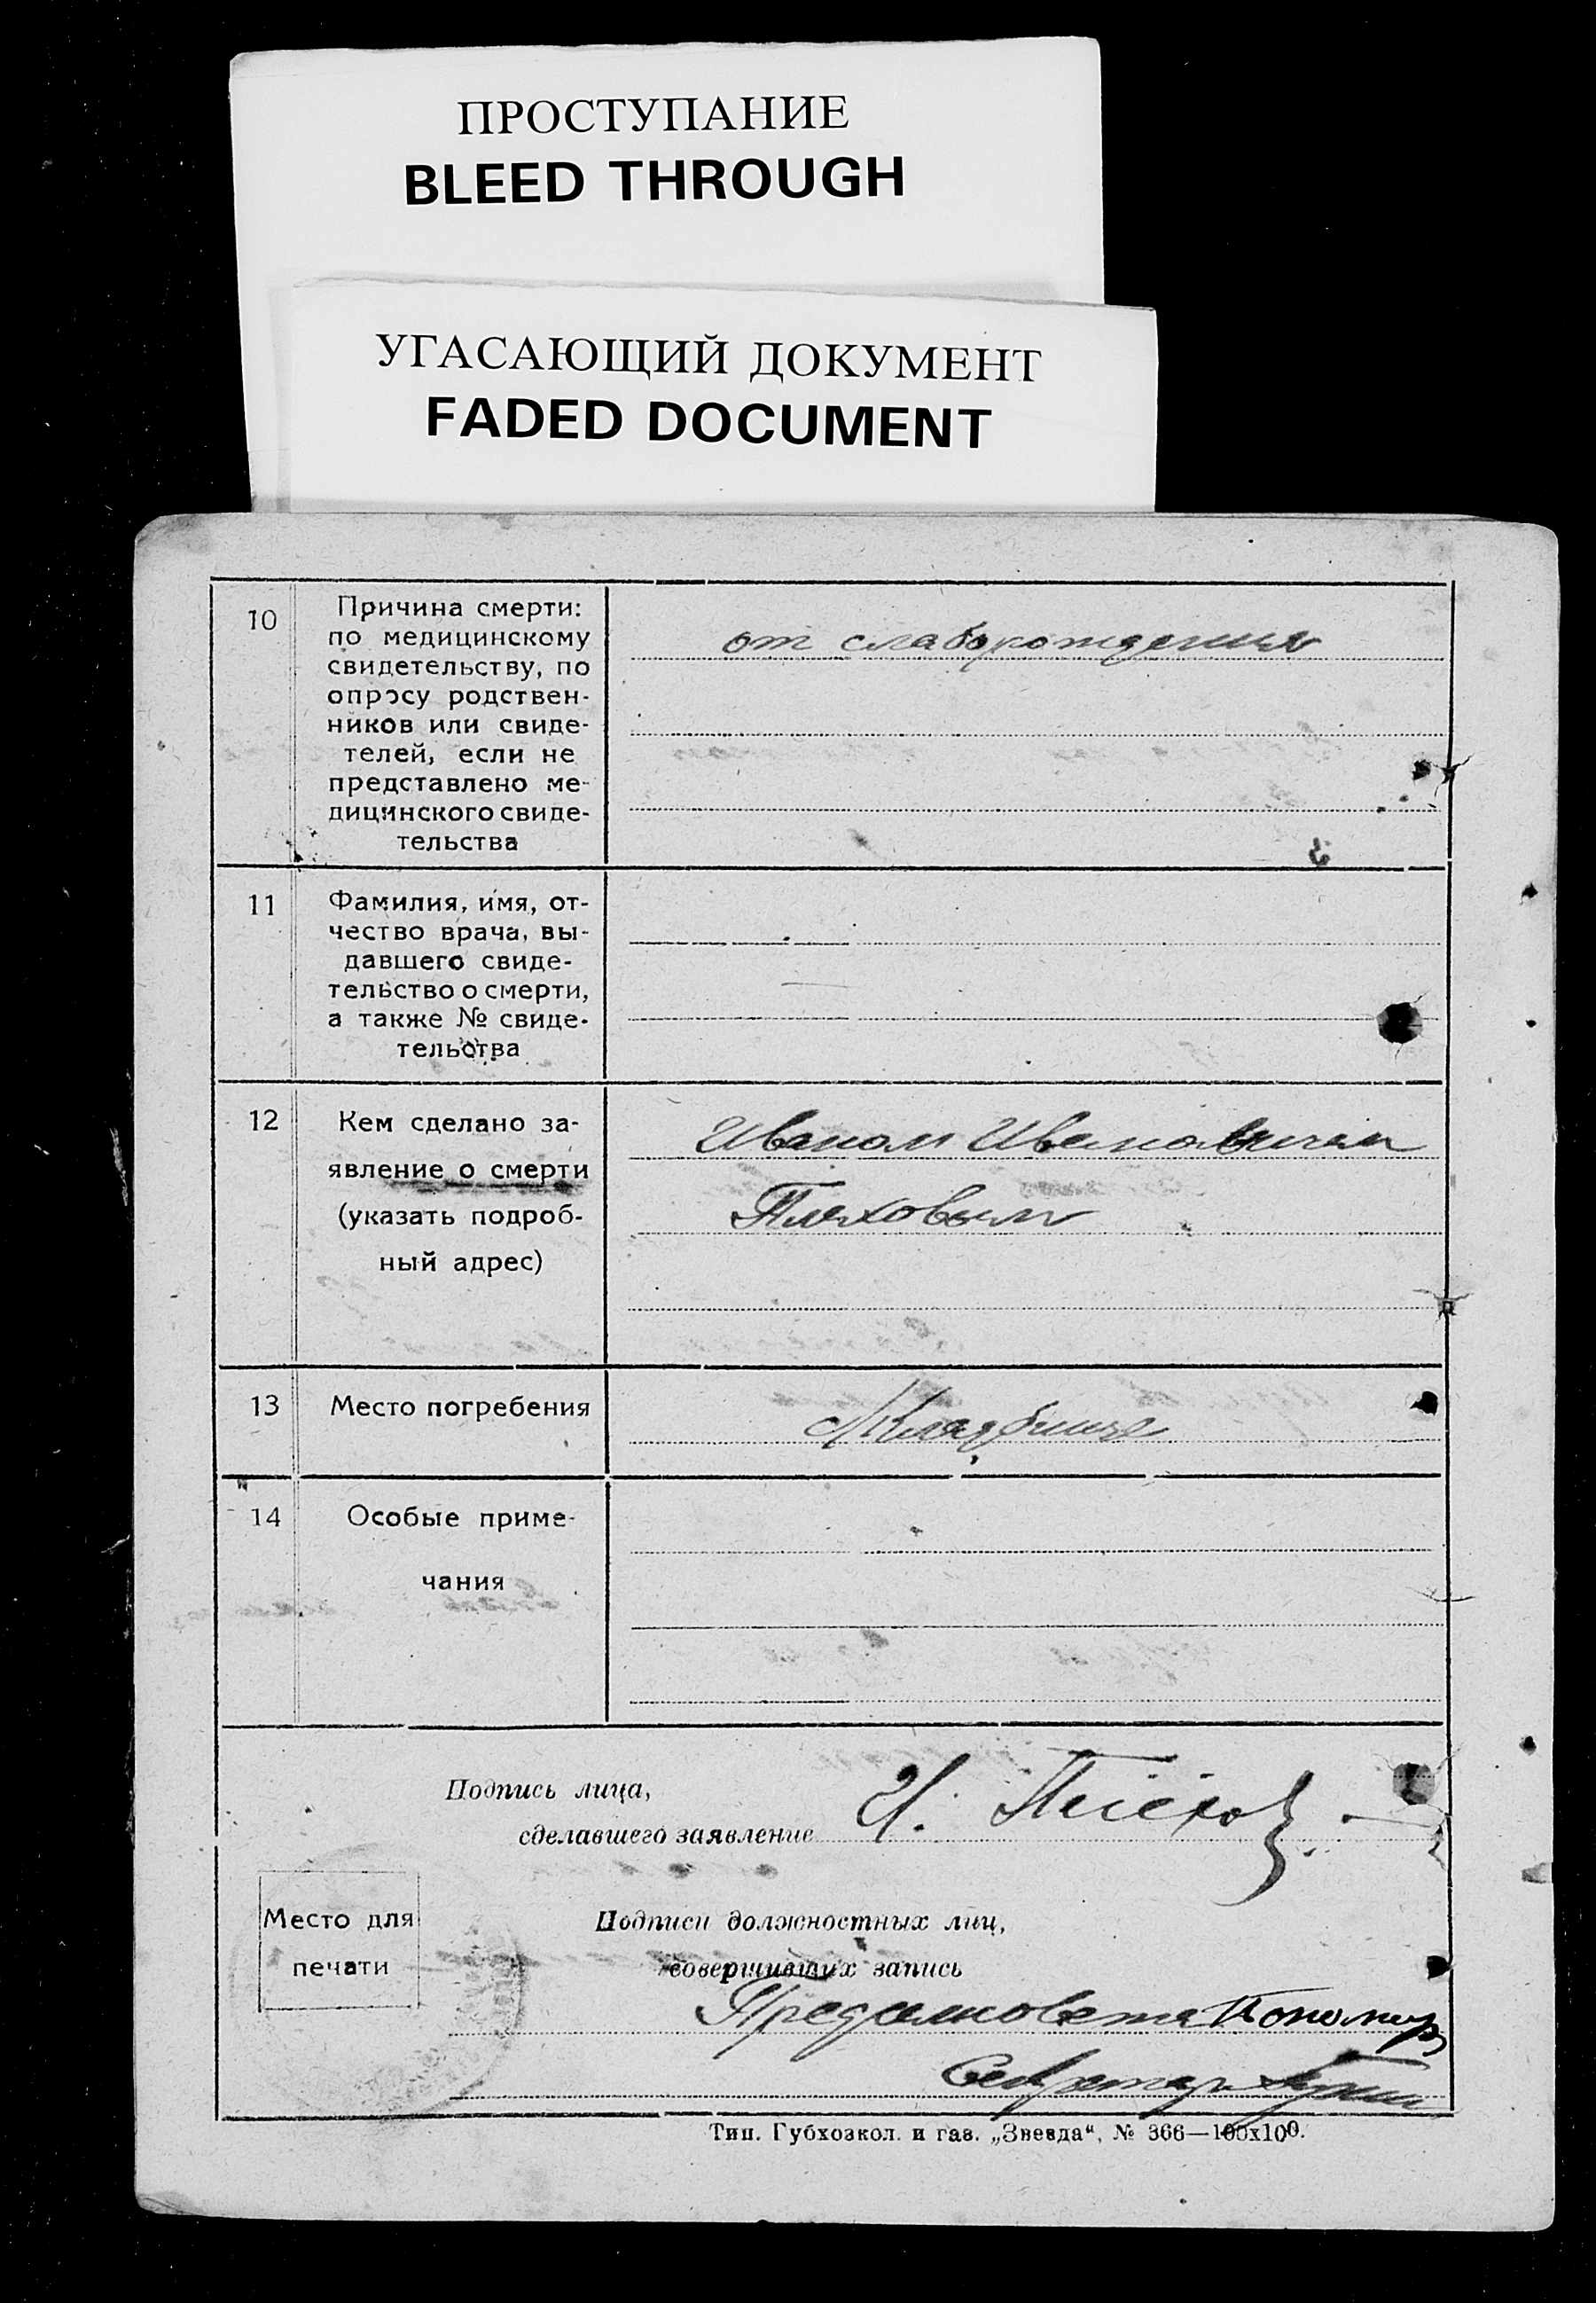 ПРОСТУПАНИЕ
BLEED THROUGH
УГАСАЮЩИЙ ДОКУМЕНТ
FADED DOCUMENT
10
Причина смерти:
по медицинскому
свидетельству, по
опросу родствен-
ников или свиде-
телей, если не
представлено ме-
дицинского свиде-
тельства
от слаборождения
11
Фамилия, имя, от-
чество врача, вы-
давшего свиде-
тельство о смерти,
а также № свиде-
тельства
12
Кем сделано за-
явление о смерти
(указать подроб-
ный адрес)
Иваном Ивановичем
Плеховым
13
Место погребения
Кладбище
14
Особые приме-
чания
Подпись лица,
сделавшего заявление
И. Плехов
Место для
печати
Подписи должностных лиц,
совершивших запись
Предсельсовета Пономар
Секретарь
Тип. Губхозкол. и газ. „Звезда“, № 366—100х100.